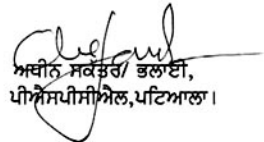 ਅਧੀਨ ਸਕੱਤਰ/ ਭਲਾਈ,
ਪੀਐਸਪੀਸੀਐਲ,ਪਟਿਆਲਾ।